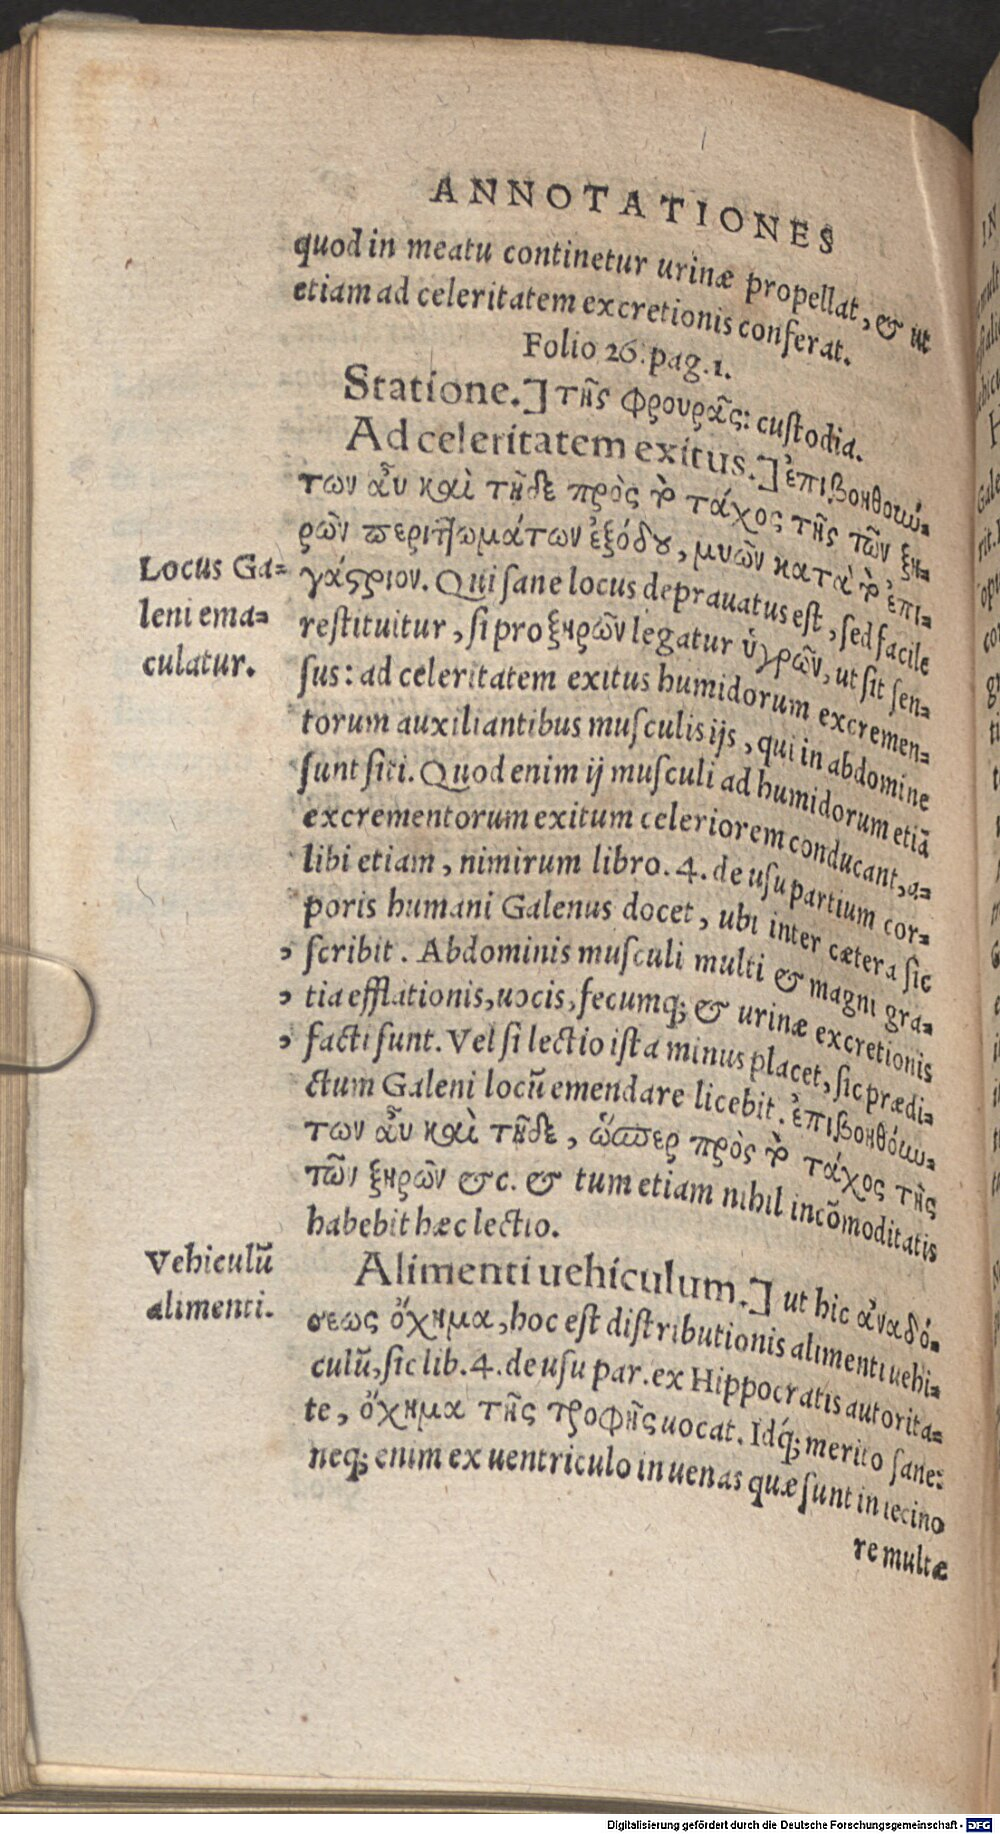 ANNOTATIONES
quod in meatu continetur urinæ propellat, & ut
etiam ad celeritatem excretionis conferat.
Folio 26. pag. 1.
Statione.] τῆς φρουρᾶς: custodia.
Ad celeritatem exitus.] ἐπιβοηθούν-
των αὖ καὶ τῇδε πρὸς τὸ τάχος τῆς τῶν ξη-
ρῶν περιττωμάτων ἐξόδου, μυῶν κατὰ τὸ ἐπι-
Locus Ga-
leni ema-
culatur.
γάστριον. Qui sane locus deprauatus est, sed facile
restituitur, si pro ξηρῶν legatur ὑγρῶν, ut sit sen-
sus: ad celeritatem exitus humidorum excremen-
torum auxiliantibus musculis ijs, qui in abdomine
sunt siti. Quod enim ij musculi ad humidorum etiā
excrementorum exitum celeriorem conducant, a-
libi etiam, nimirum libro. 4. de usu partium cor-
poris humani Galenus docet, ubi inter cætera sic
, scribit. Abdominis musculi multi & magni gra-
, tia efflationis, uocis, fecumq; & urinæ excretionis
, facti sunt. Vel si lectio ista minus placet, sic prædi-
ctum Galeni locū emendare licebit. ἐπιβοηθούν-
των αὖ καὶ τῇδε, ὥσπερ πρὸς τὸ τάχος τῆς
τῶν ξηρῶν &c. & tum etiam nihil incōmoditatis
habebit hæc lectio.
Vehiculū
alimenti.
Alimenti uehiculum.] ut hic ἀναδό-
σεως ὄχημα, hoc est distributionis alimenti uehi-
culū, sic lib. 4. de usu par. ex Hippocratis autorita-
te, ὄχημα τῆς τροφῆς uocat. Idq́; merito sane:
neq; enim ex uentriculo in uenas quæ sunt in iecino
re multæ
IN
Digitalisierung gefördert durch die Deutsche Forschungsgemeinschaft - DFG